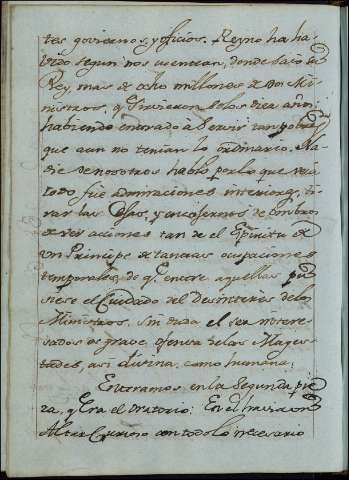 tes goviernos, y oficios. Reyno ha ha
vido segun nos cuentan, donde saco el
Rey mas de ocho millones de sos Mi
nistros, q sirvieron solos diez años
habiendo entrado à servir tan pobres
que aun no tenian lo ordinario. Na
die de nosotros hablo, por lo que
todo fue admiraciones interiores, ti
rar las Cejas, y encojernos de ombros
de ver acciones tan de el Espiritu de
un Principe de tantas ocupaciones
temporales, de q. entre aquellas pu
siese el Cuidado del Desinteres de los
Ministros, sin duda el ser interes
sados es grave ofensa de las Mages
tades, asi divina, como humana.
Entramos en la Segunda pie
za, q Era el oratorio: En el havia un
Altar Curioso con todo lo necesario